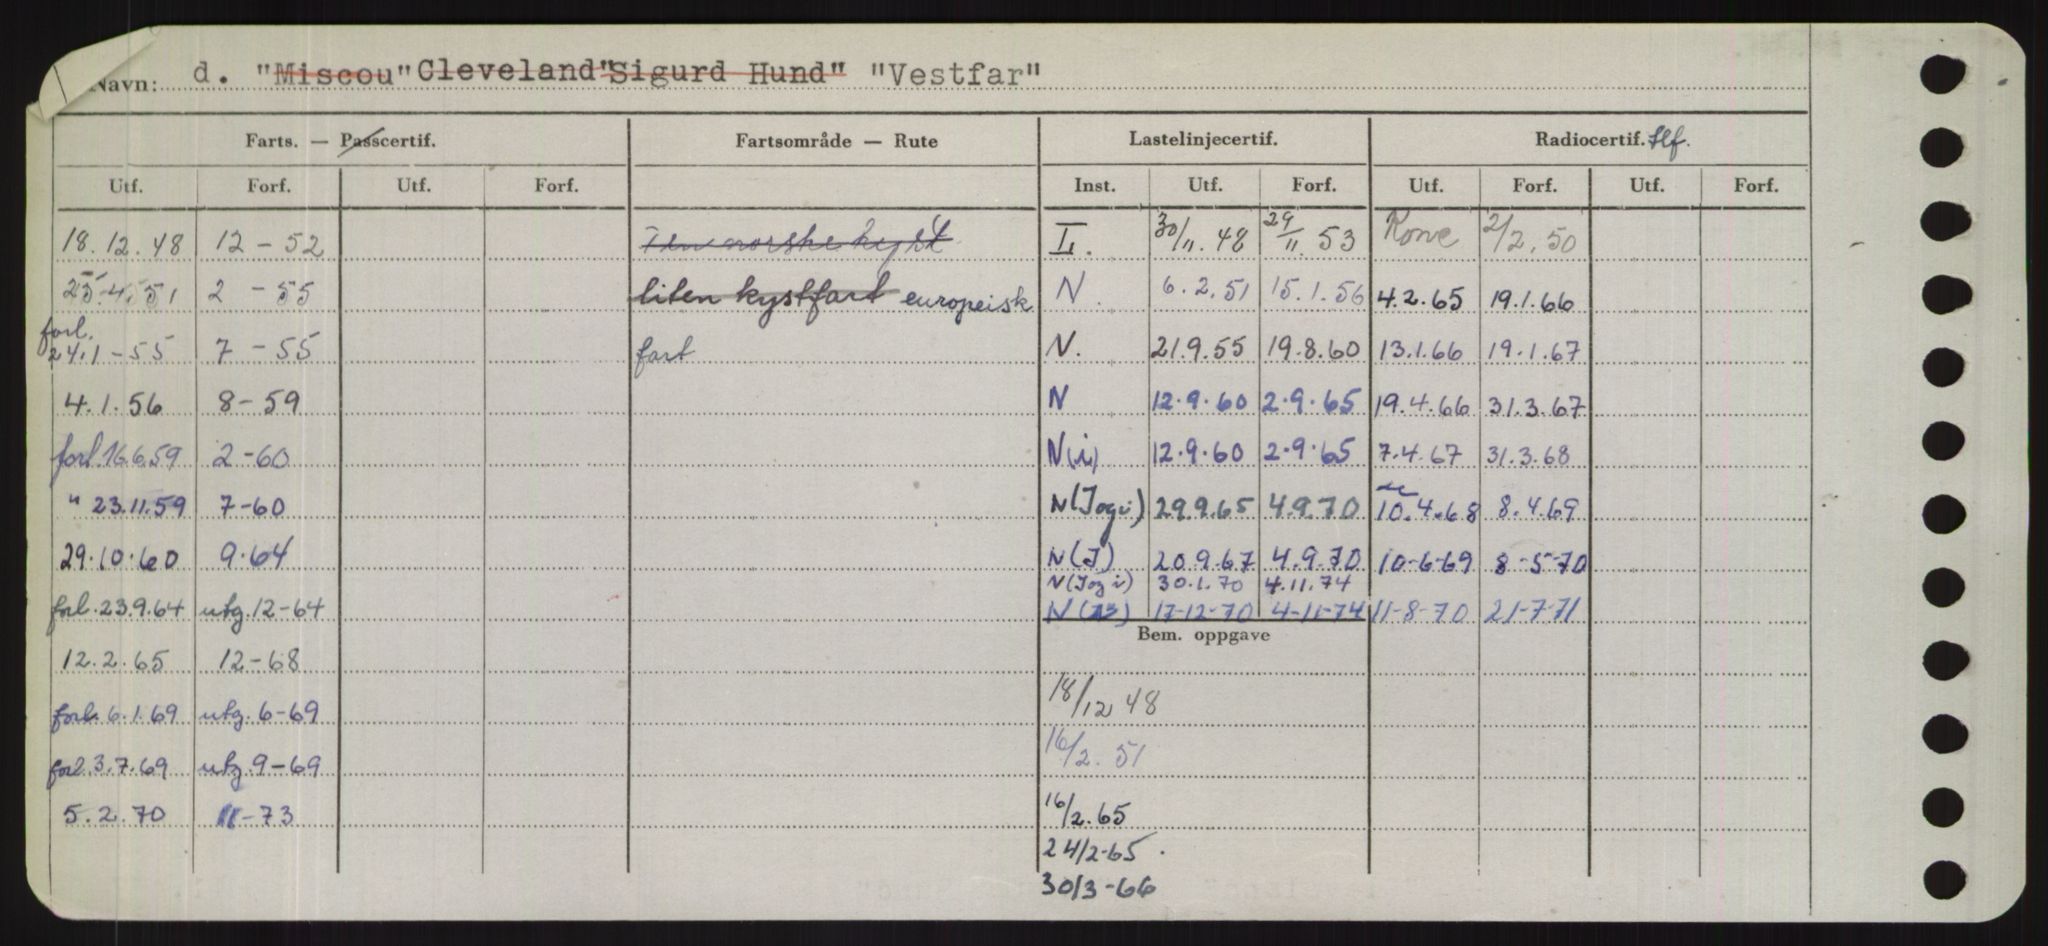 Navn: d. "Miscou" Cleveland "Sigurd Hund" "Vestfar"
Farts. — Passcertif. Fartsområde — Rute Lastelinjecertif. Radiocertif. tlf.
Utf. Forf. Utf. Forf. Inst. Utf. Forf. Utf. Forf. Utf. Forf.
18.12.48 12-52 Den norske kyst 30/11.48 29/11 53 2/2.50
25.4.51 2-55 liten kystfart europeisk N. 6.2.51 15.1.56 4.2.65 19.1.66
forl.
24.1-55 7-55 fart N. 21.9.55 19.8.60 13.1.66 19.1.67
4.1.56 8-59 N 12.9.60 2.9.65 19.4.66 31.3.67
forl.16.6.59 2-60 N(i) 12.9.60 2.9.65 7.4.67 31.3.68
" 23.11.59 7-60 N(Jogi) 29.9.65 4.9.70 10.4.68 8.4.69
29.10.60 9.64 N(J) 20.9.67 4.9.70 10-6-69 8-5-70
N(Jog i) 30.1.70 4.11.74
forl.23.9.64 utg.12-64 N 17-12-70 4-11-74 11-8-70 21-7-71
Bem. oppgave
12.2.65 12-68
forl.6.1.69 utg.6-69 18/12 48
forl.3.7.69 utg.9-69 16/2.51
5.2.70 11-73 16/2.65
24/2-65.
30/3-66